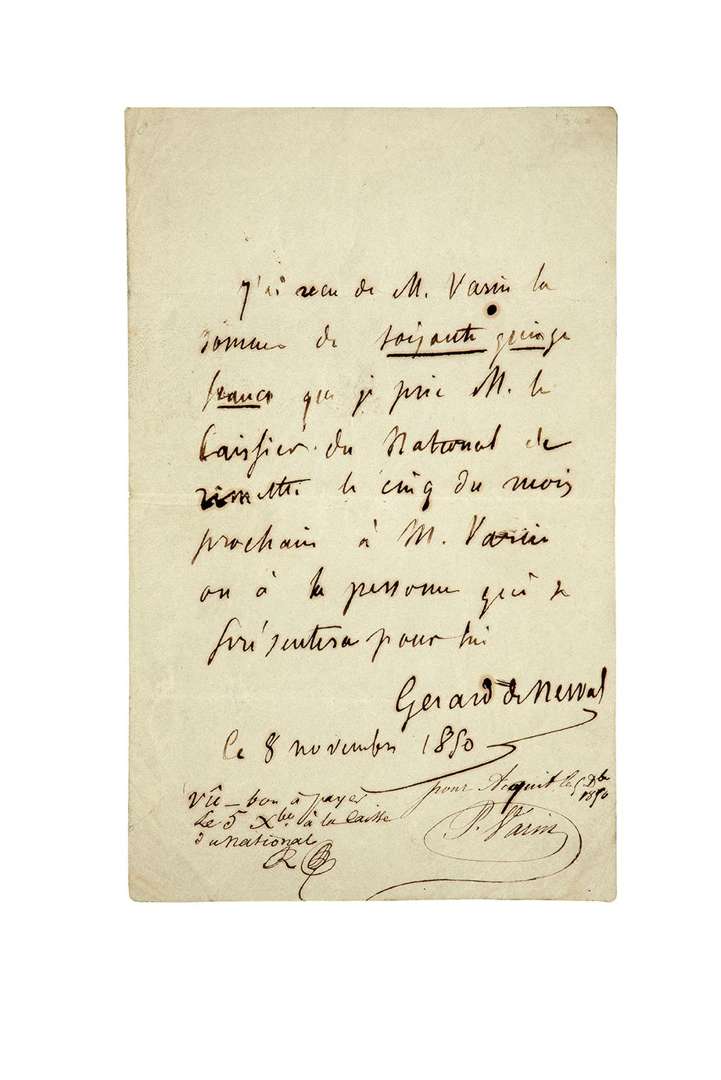 J'ai reçu de M. Varin la
somme de soixante quinze
francs que je prie M. le
Caissier du National de
remettre le cinq du mois
prochain à M. Varin
ou à la personne qui se
présentera pour lui
Gérard de Nerval
Le 8 novembre 1850
Vû – bon à payer
Le 5 Xbre à la Caisse
du National
pour Acquit le 5 Dbre
1850
P. Varin